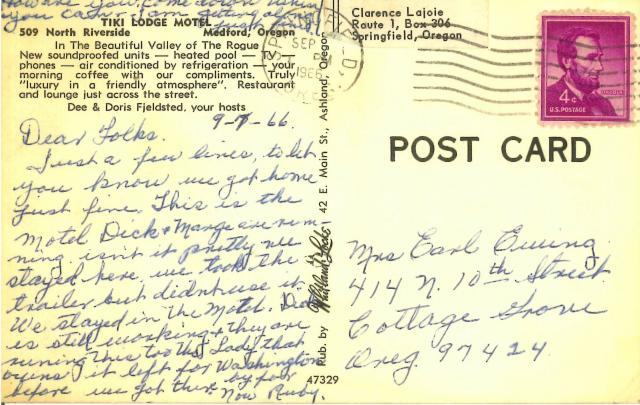 How are you come down when
you can. I am getting along
TIKI LODGE MOTEL
509 North Riverside Medford, Oregon
In The Beautiful Valley of The Rogue
New soundproofed units — heated pool —
phones — air conditioned by refrigeration — your
morning coffee with our compliments. Truly
"luxury in a friendly atmosphere". Restaurant
and lounge just across the street.
Dee & Doris Fjeldsted, your hosts
9-7-66.
Dear Folks.
Just a few lines, to let
you know we got home
just fine. This is the
Motel Dick & Marge are run-
ning isn't it pretty we
stayed here we took the
trailer but didn't use it.
We stayed in the Motel. Dick
is still working & they are
runing this too the Lady that
owns it left for Washington
before we got there by for
now Ruby.
Pub. by 42 E. Main St., Ashland, Oregon
47329
SPRINGFIELD,
SEP
PM
1966
Clarence Lajoie
Route 1, Box 306
Springfield, Oregon
4¢
LINCOLN
U.S. POSTAGE
POST CARD
Mrs Earl Ewing
414 N. 10th Street
Cottage Grove
Oreg. 97424.